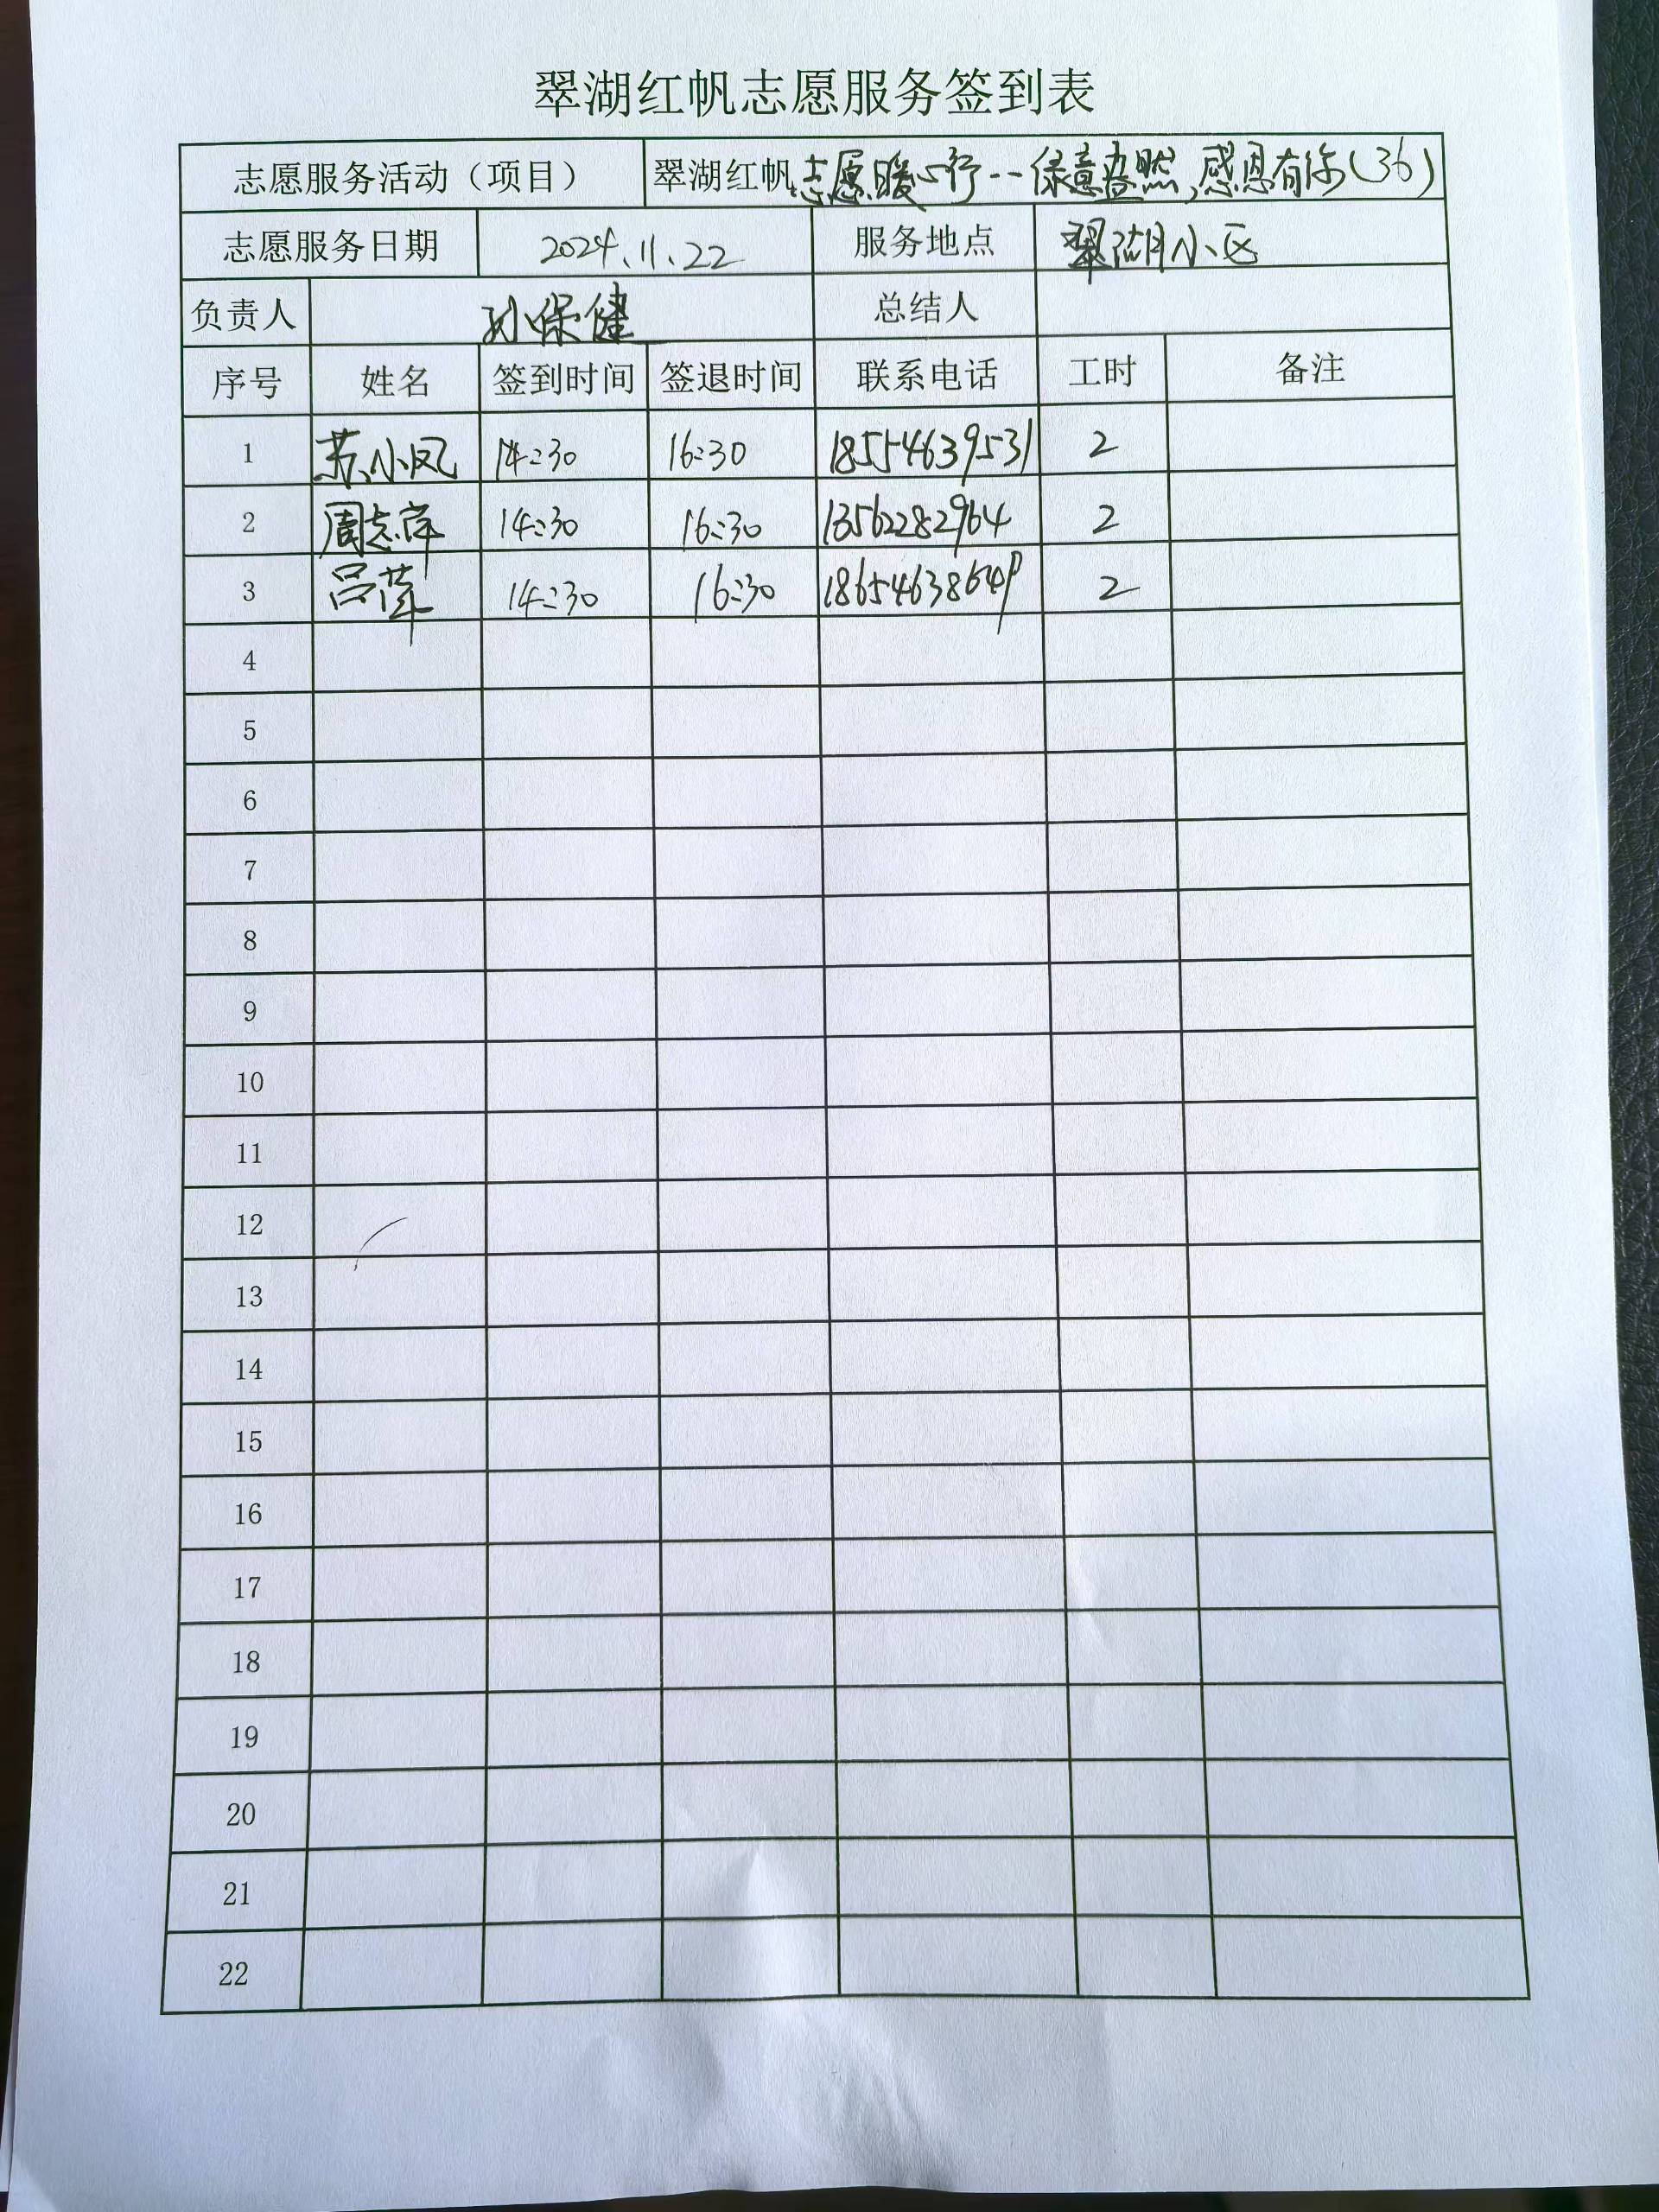 翠湖红帆志愿服务签到表
志愿服务活动（项目） 翠湖红帆志愿暖心行--绿意盎然,感恩有你(36)
志愿服务日期 2024.11.22 服务地点 翠湖小区
负责人 孙保健 总结人
序号 姓名 签到时间 签退时间 联系电话 工时 备注
1 苏小凤 14:30 16:30 18554639531 2
2 周志萍 14:30 16:30 13562282964 2
3 吕萍 14:30 16:30 2
4
5
6
7
8
9
10
11
12
13
14
15
16
17
18
19
20
21
22